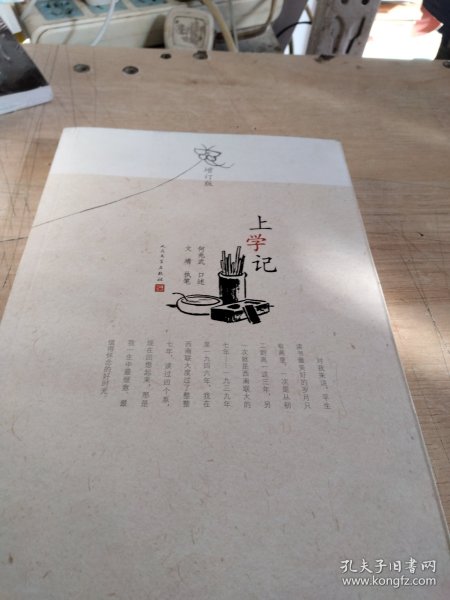 增订版
上学记
何兆武 口述
文靖 执笔
人民文学出版社
对我来说，平生
读书最美好的岁月只
有两度，一次是从初
二到高一这三年，另
一次就是西南联大的
七年……一九三九年
至一九四六年，我在
西南联大度过了整整
七年，读过四个系，
现在回想起来，那是
我一生中最惬意、最
值得怀念的好时光。
孔夫子旧书网
www.kongfz.com